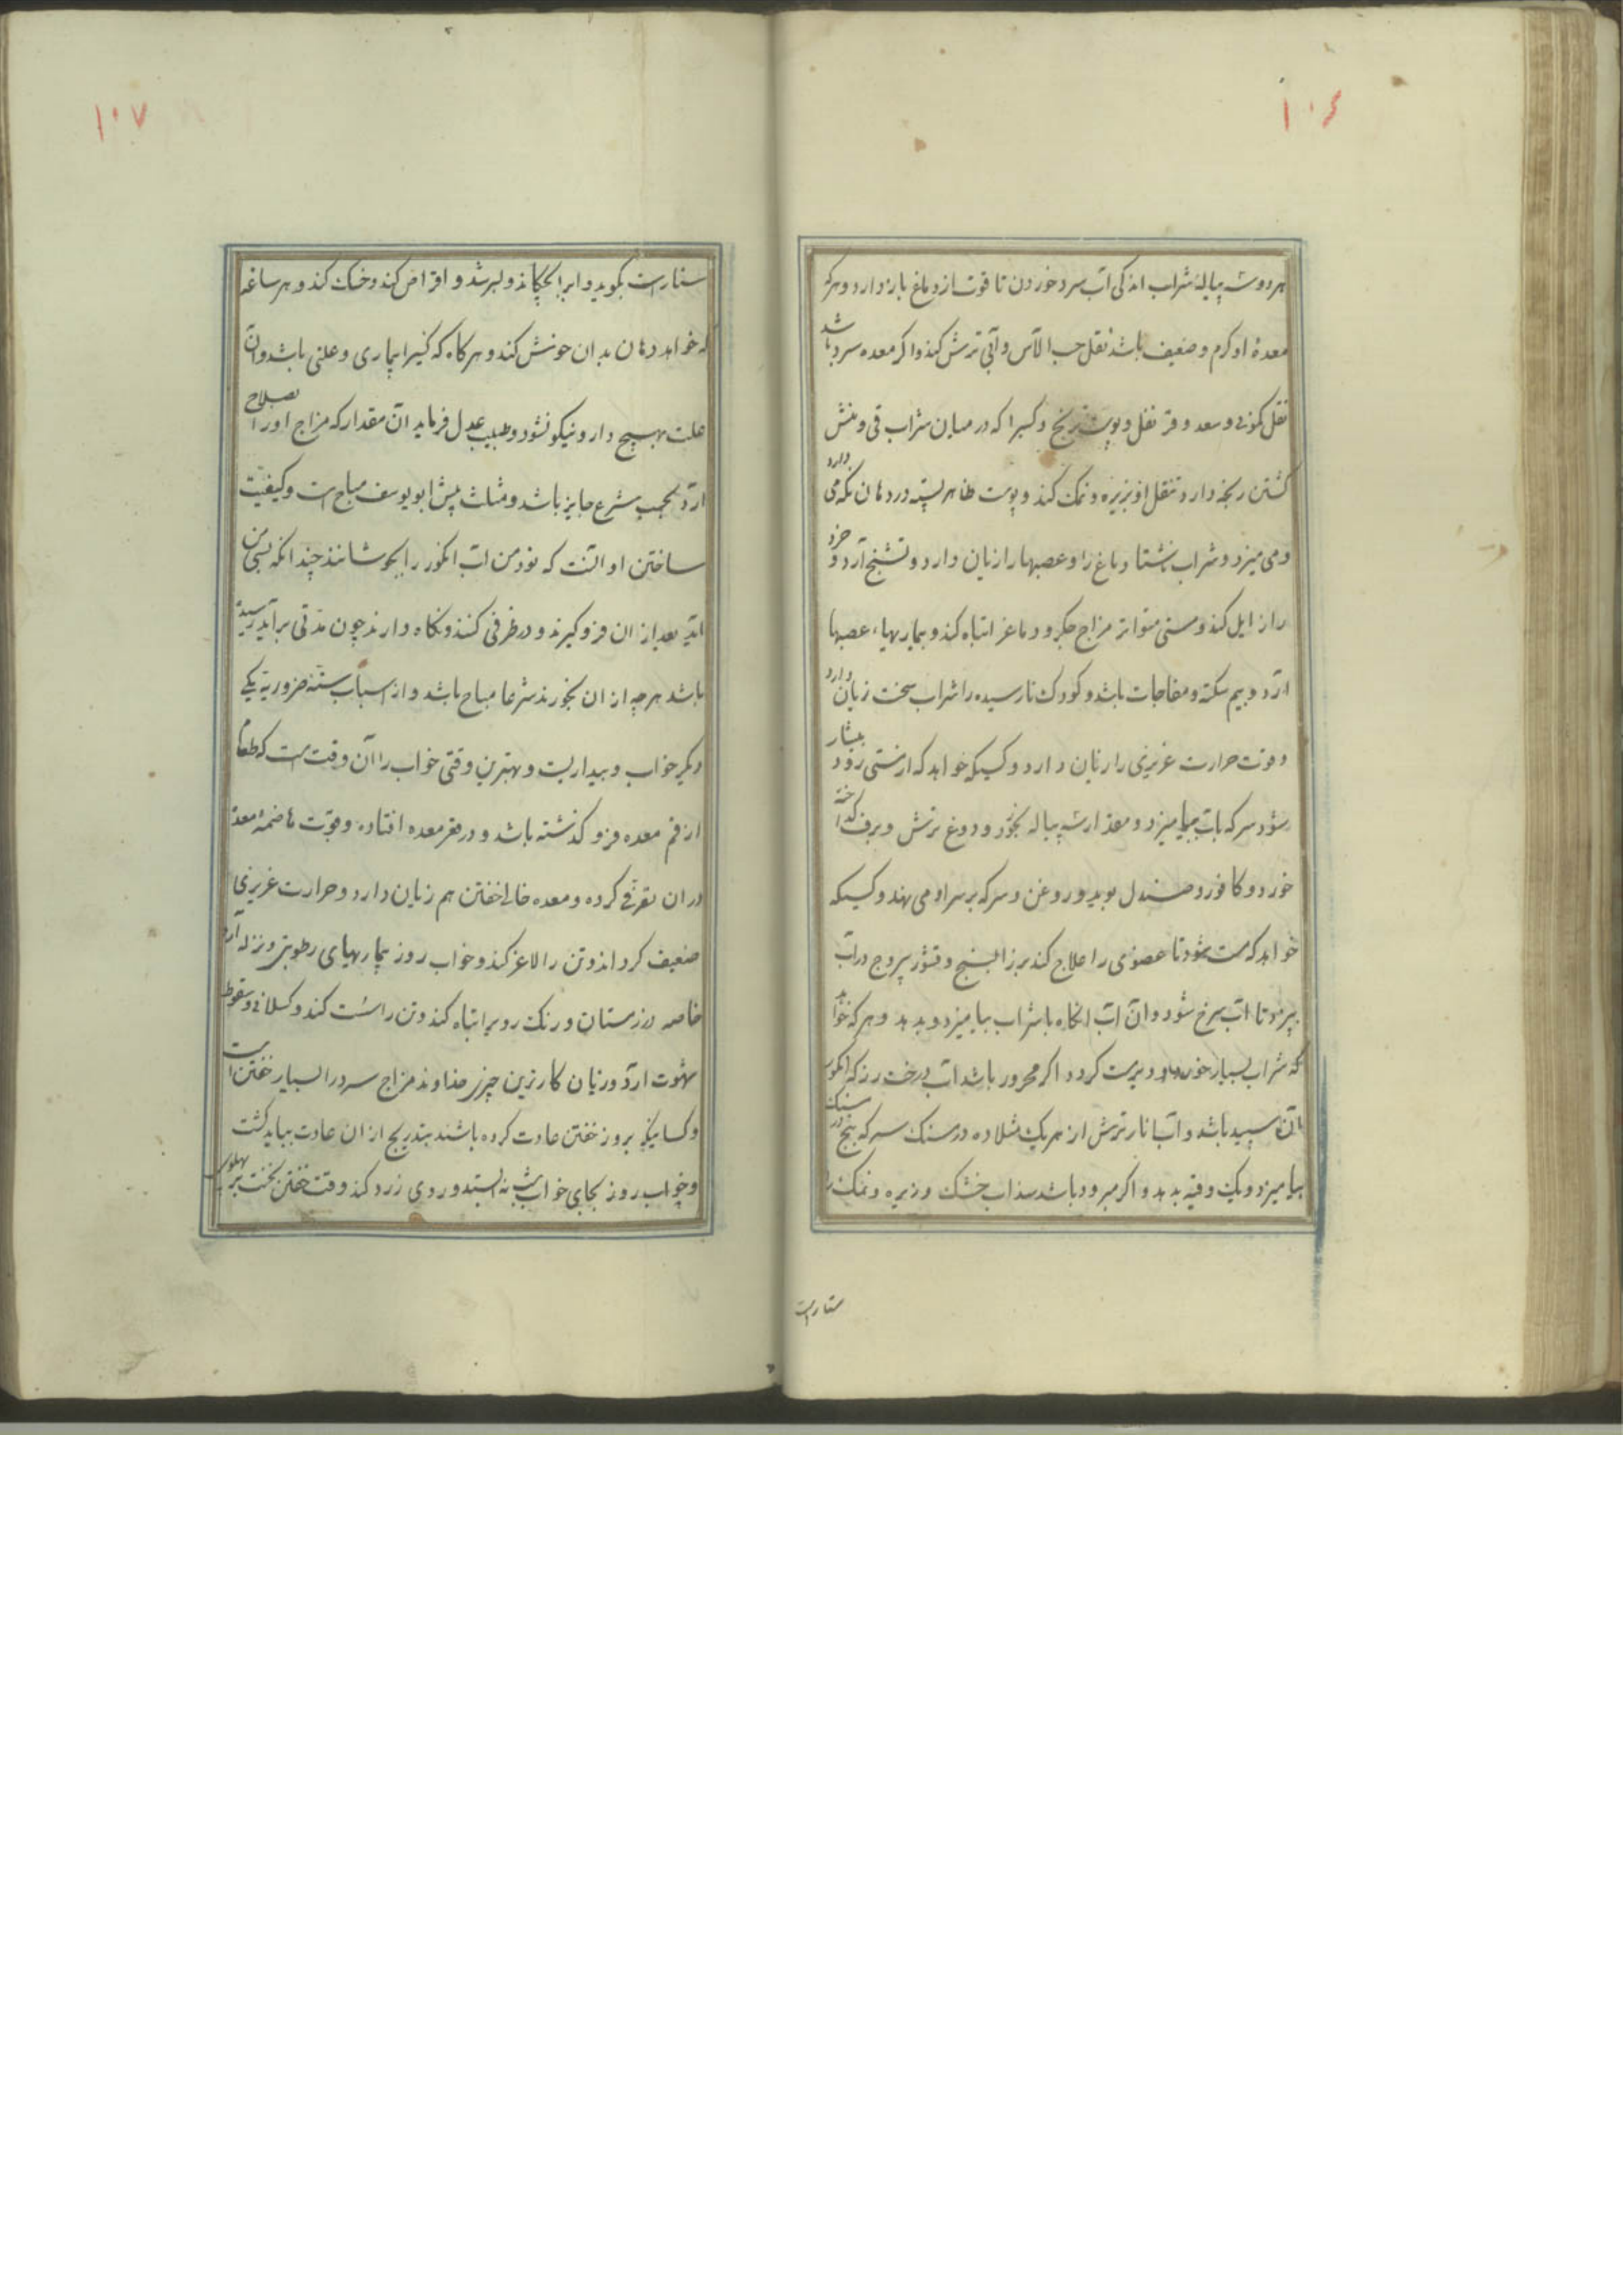 ۱۰۶
هر دو سه پیاله شراب اندکی آب سرد خوردن تا قوت از دماغ باز دارد و هر که
معده او گرم و ضعیف باشد نقل حب الآس و آبی ترش کند و اگر معده سرد باشد
نقل کمونی و سعد و قرنفل و پوست ترنج و کسیرا که در میان شراب قی و منش
گشتن رنجه دارد تنقل او بزیره و نمک کند و پوست ظاهر پسته در دهان نگه می دارد
و می میزد و شراب ناشتا دماغ را و عصبها را زیان دارد و تشنج آرد و خرد
را زایل کند و مستی متواتر مزاج جگر و دماغ را تباه کند و بیماریهاء عصبها
آرد و بیم سکته و مفاجات باشد و کودک نارسیده را شراب سخت زیان دارد
و قوت حرارت غریزی را زیان دارد و کسیکه خواهد که از مستی زود بیشار
شود سرکه بآب بیامیزد و مقدار سه پیاله بخورد و دوغ ترش و برف گداخته
خورد و کافور و صندل بوید و روغن و سرکه بر سر او می نهند و کسیکه
خواهد که مست شود تا عضوی را علاج کند بزر البنج و قشور یبروج در آب
بپزند تا آب سرخ شود و آن آب آنگاه با شراب بیامیزد و بدهد و هر که خواهد
که شراب بسیار خورد و دیر مست گردد اگر محرور باشد آب درخت رز که انگور
آن سپید باشد و آب انار ترش از هر یک مثلا ده درمسنک سرکه پنج درمسنک
بیامیزد و یک وقیه بدهد و اگر مبرود باشد سذاب خشک و زیره و نمک را
ستا راست
۱۰۷
ستا راست بکوبد و ... و اقراص کند و خشک کند و هر ساعه
که خواهد دهان بدان خوش کند و هر گاه که کسیرا بیماری و علتی باشد و آن
علت بهیچ دارو نیکو نشود و طبیب عدل فرماید آن مقدار که مزاج او را بصلاح
آرد بحسب شرع جایز باشد و مثلث پیش ابو یوسف مباح است و کیفیت
ساختن او آنست که نود من آب انگور را بجوشانند چندانکه بسی من
آید بعد از آن فرو گیرند و در ظرفی کنند و نگاه دارند چون مدتی برآید رسیده
باشد هر چه از آن بخورند شرعا مباح باشد و از اسباب سته ضروریه یکی
دیگر خواب و بیداریست و بهترین وقتی خواب را آن وقت است که طعام
از فم معده فرو گذشته باشد و در قعر معده افتاده و قوت هاضمه معده
در آن تصرفی کرده و معده خالی خفتن هم زیان دارد و حرارت غریزی
ضعیف گرداند و تن را لاغر کند و خواب روز بیماریهای رطوبتی و نزله آرد
خاصه در زمستان و رنک روی را تباه کند و تن را سست کند و کسلانی و سقوط
شهوت آرد و زیان کارترین چیزی خداوند مزاج سرد را بسیار خفتن است
و کسانیکه بروز خفتن عادت کرده باشند بتدریج از آن عادت بباید گشت
و خواب روز بجای خواب شب نه ایستد و روی زرد کند و وقت خفتن نخست بر پهلوی